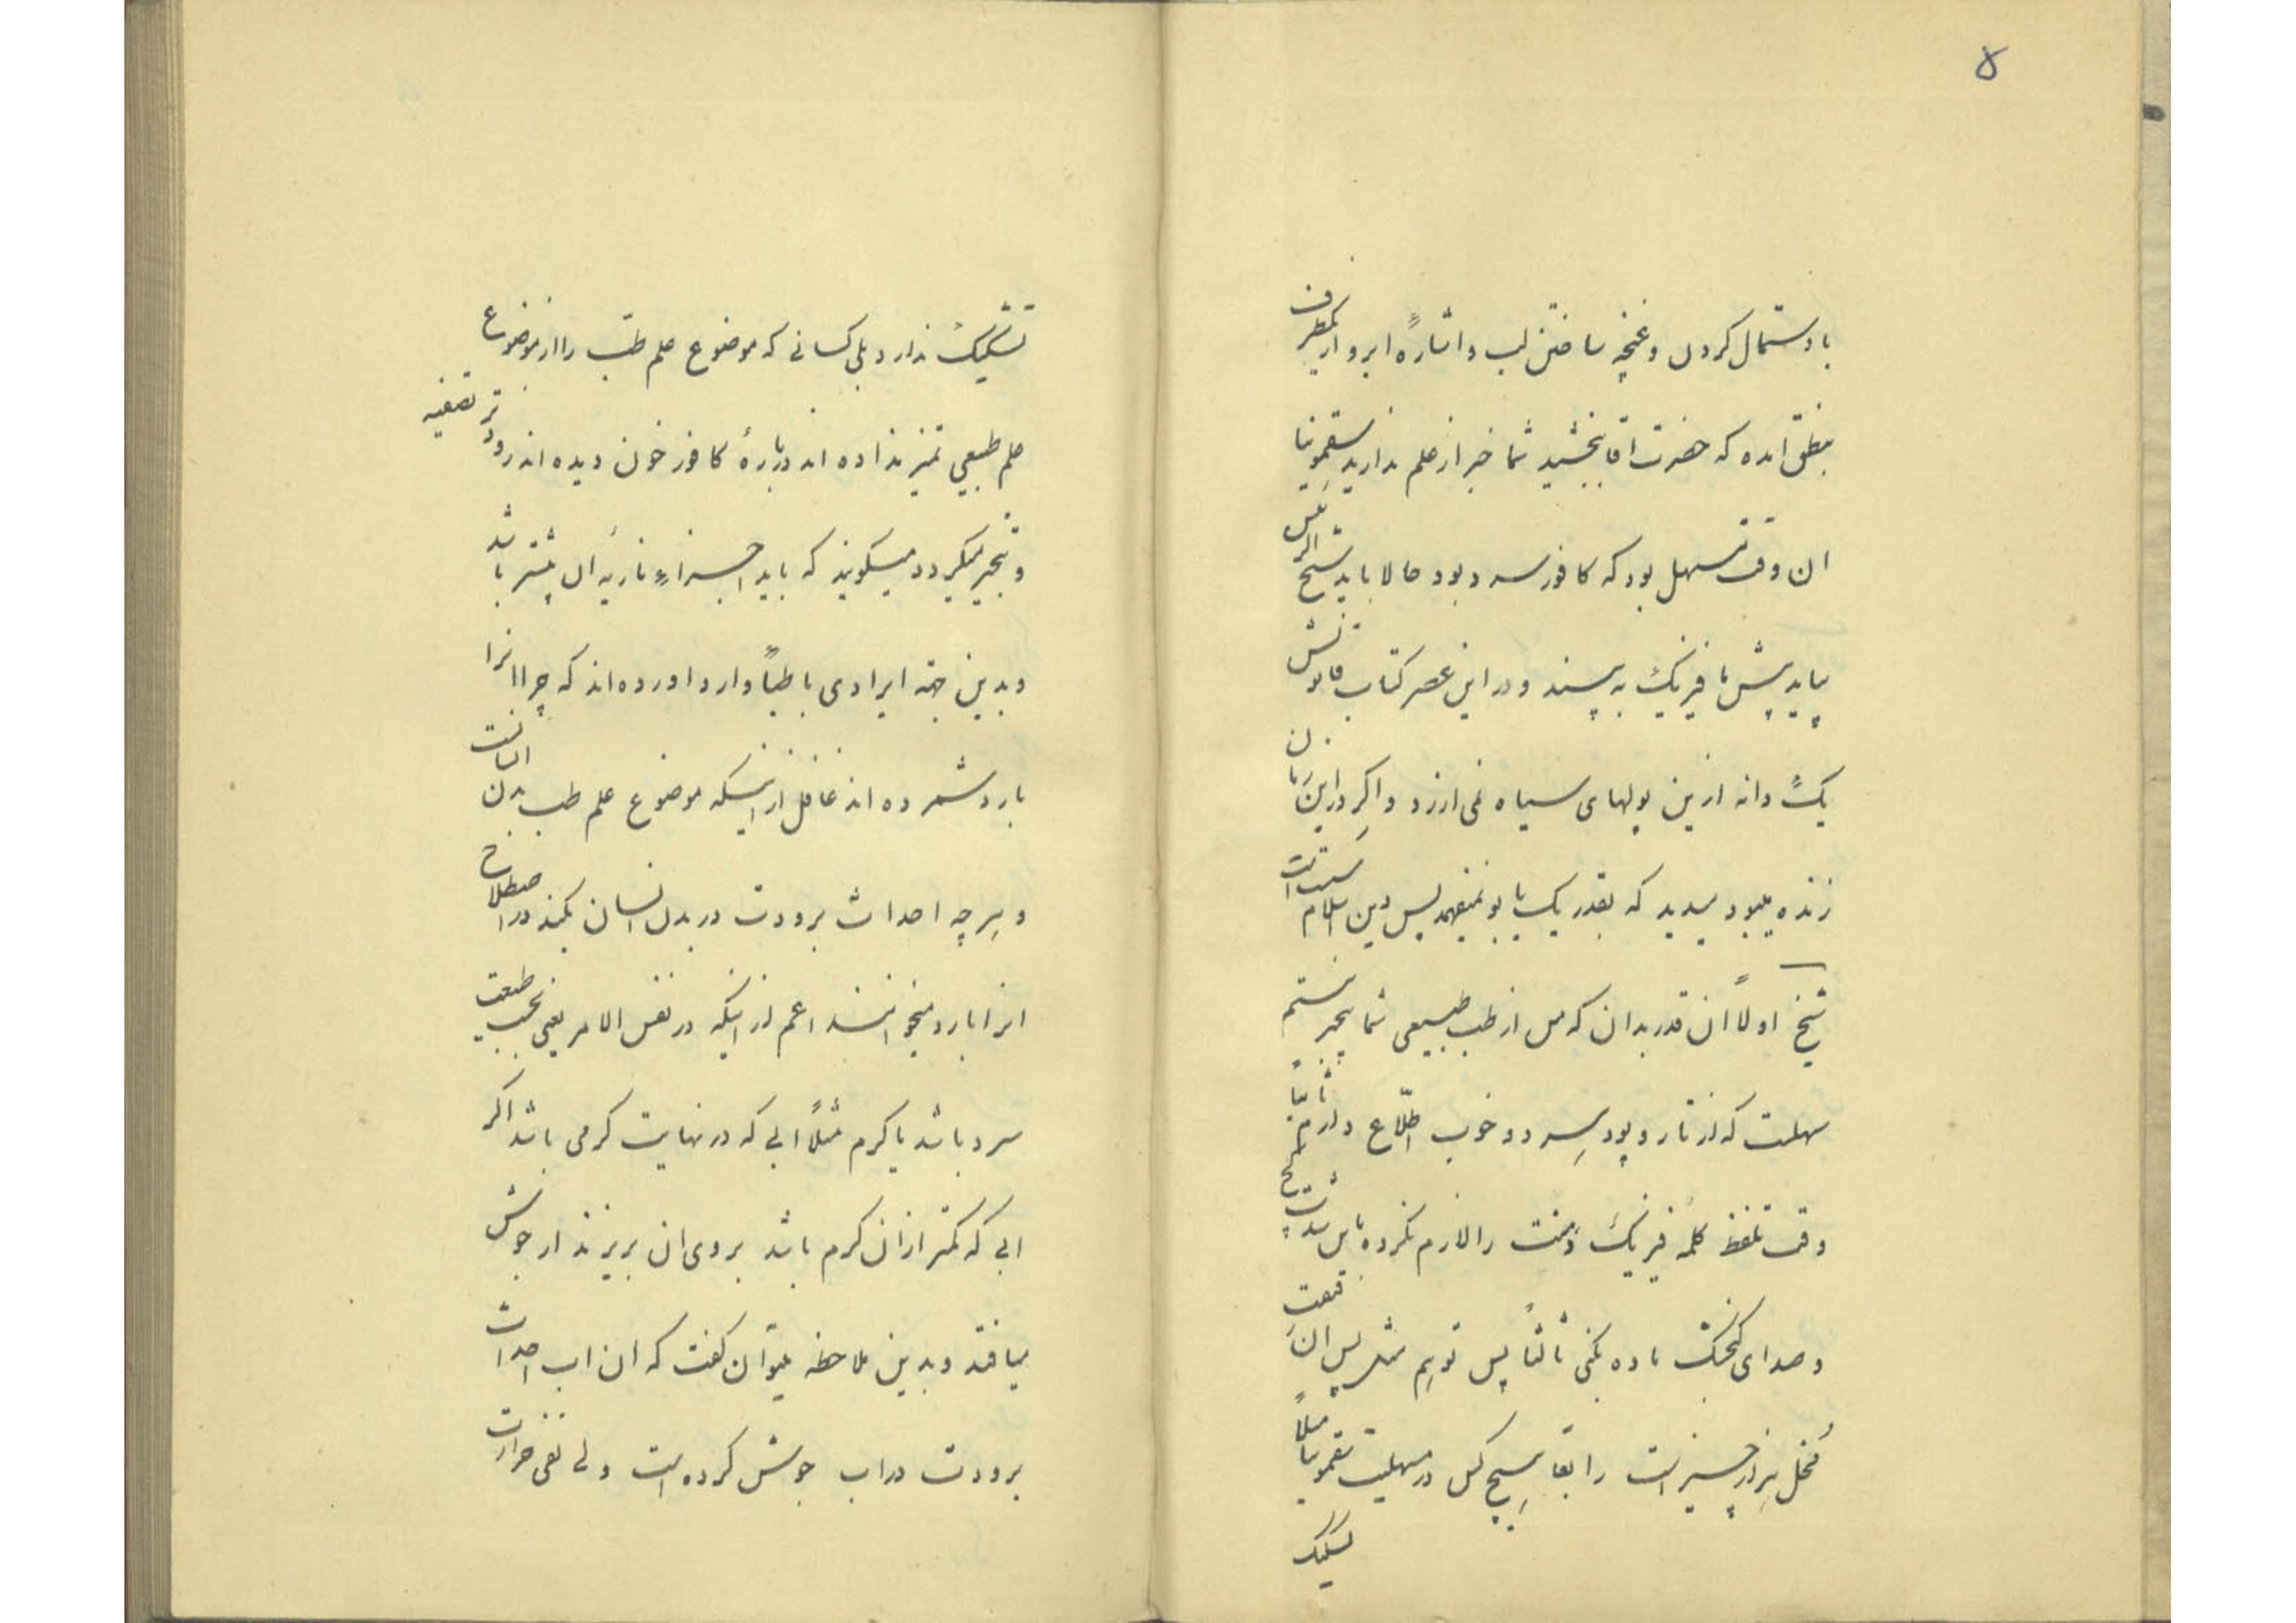 ۸
با دستمال کردن و غنچه ساختن لب و اشارهٔ ابرو از یکطرف
بنطق امده که حضرت اقا ببخشید شما خبر از علم ندارید سقمونیا
ان وقت مسهل بود که کافور سرد بود حالا باید شیخ الرئیس
بیاید پیش ما فیزیک به بیند و در این عصر کتاب قانونش
یک دانه ازین پولهای سیاه نمی ارزد و اکر در این زمان
زنده میبود میدید که بقدر یک یابو نمیفهمد پس دین اسلام سست است
شیخ اولاً ان قدر بدان که من از طب طبیعی شما بیخبر نیستم
سهلست که از تار و پود هر دو خوب اطّلاع دارم ثانیاً هیچ
وقت تلفظ کلمهٔ فیزیک دمت را لازم نکرده باین شدت
و صدای کنجشک ماده بکنی ثالثاً پس توهم مثل پس ان وقعت
مخل هزار چیز است رابعاً هیچ کس در مسهلیت سقمونیا مثلاً
تشکیک
تشکیک ندارد بلی کسانی که موضوع علم طبّ را از موضوع
علم طبیعی تمیز نداده اند دربارهٔ کافور خون دیده اند زودتر تصفیه
و تبخیر میکردد میکویند که باید اجزاء ناریهٔ ان بیشتر باشد
و بدین جهة ایرادی باطباً وارد اورده اند که چرا انرا
بارد شمرده اند غافل از اینکه موضوع علم طب بدن انسانست
و هرچه احداث برودت در بدن انسان بکند در اصطلاح
انرا بارد میخوانند اعم از اینکه در نفس الامر یعنی بحسب طبیعت
سرد باشد یا کرم مثلاً ابی که در نهایت کرمی باشد اکر
ابی که کمتر از ان کرم باشد بروی ان بریزند از جوش
میافتد و بدین ملاحظه میتوان کفت که ان اب احداث
برودت در اب جوش کرده است ولی نفی حرارت